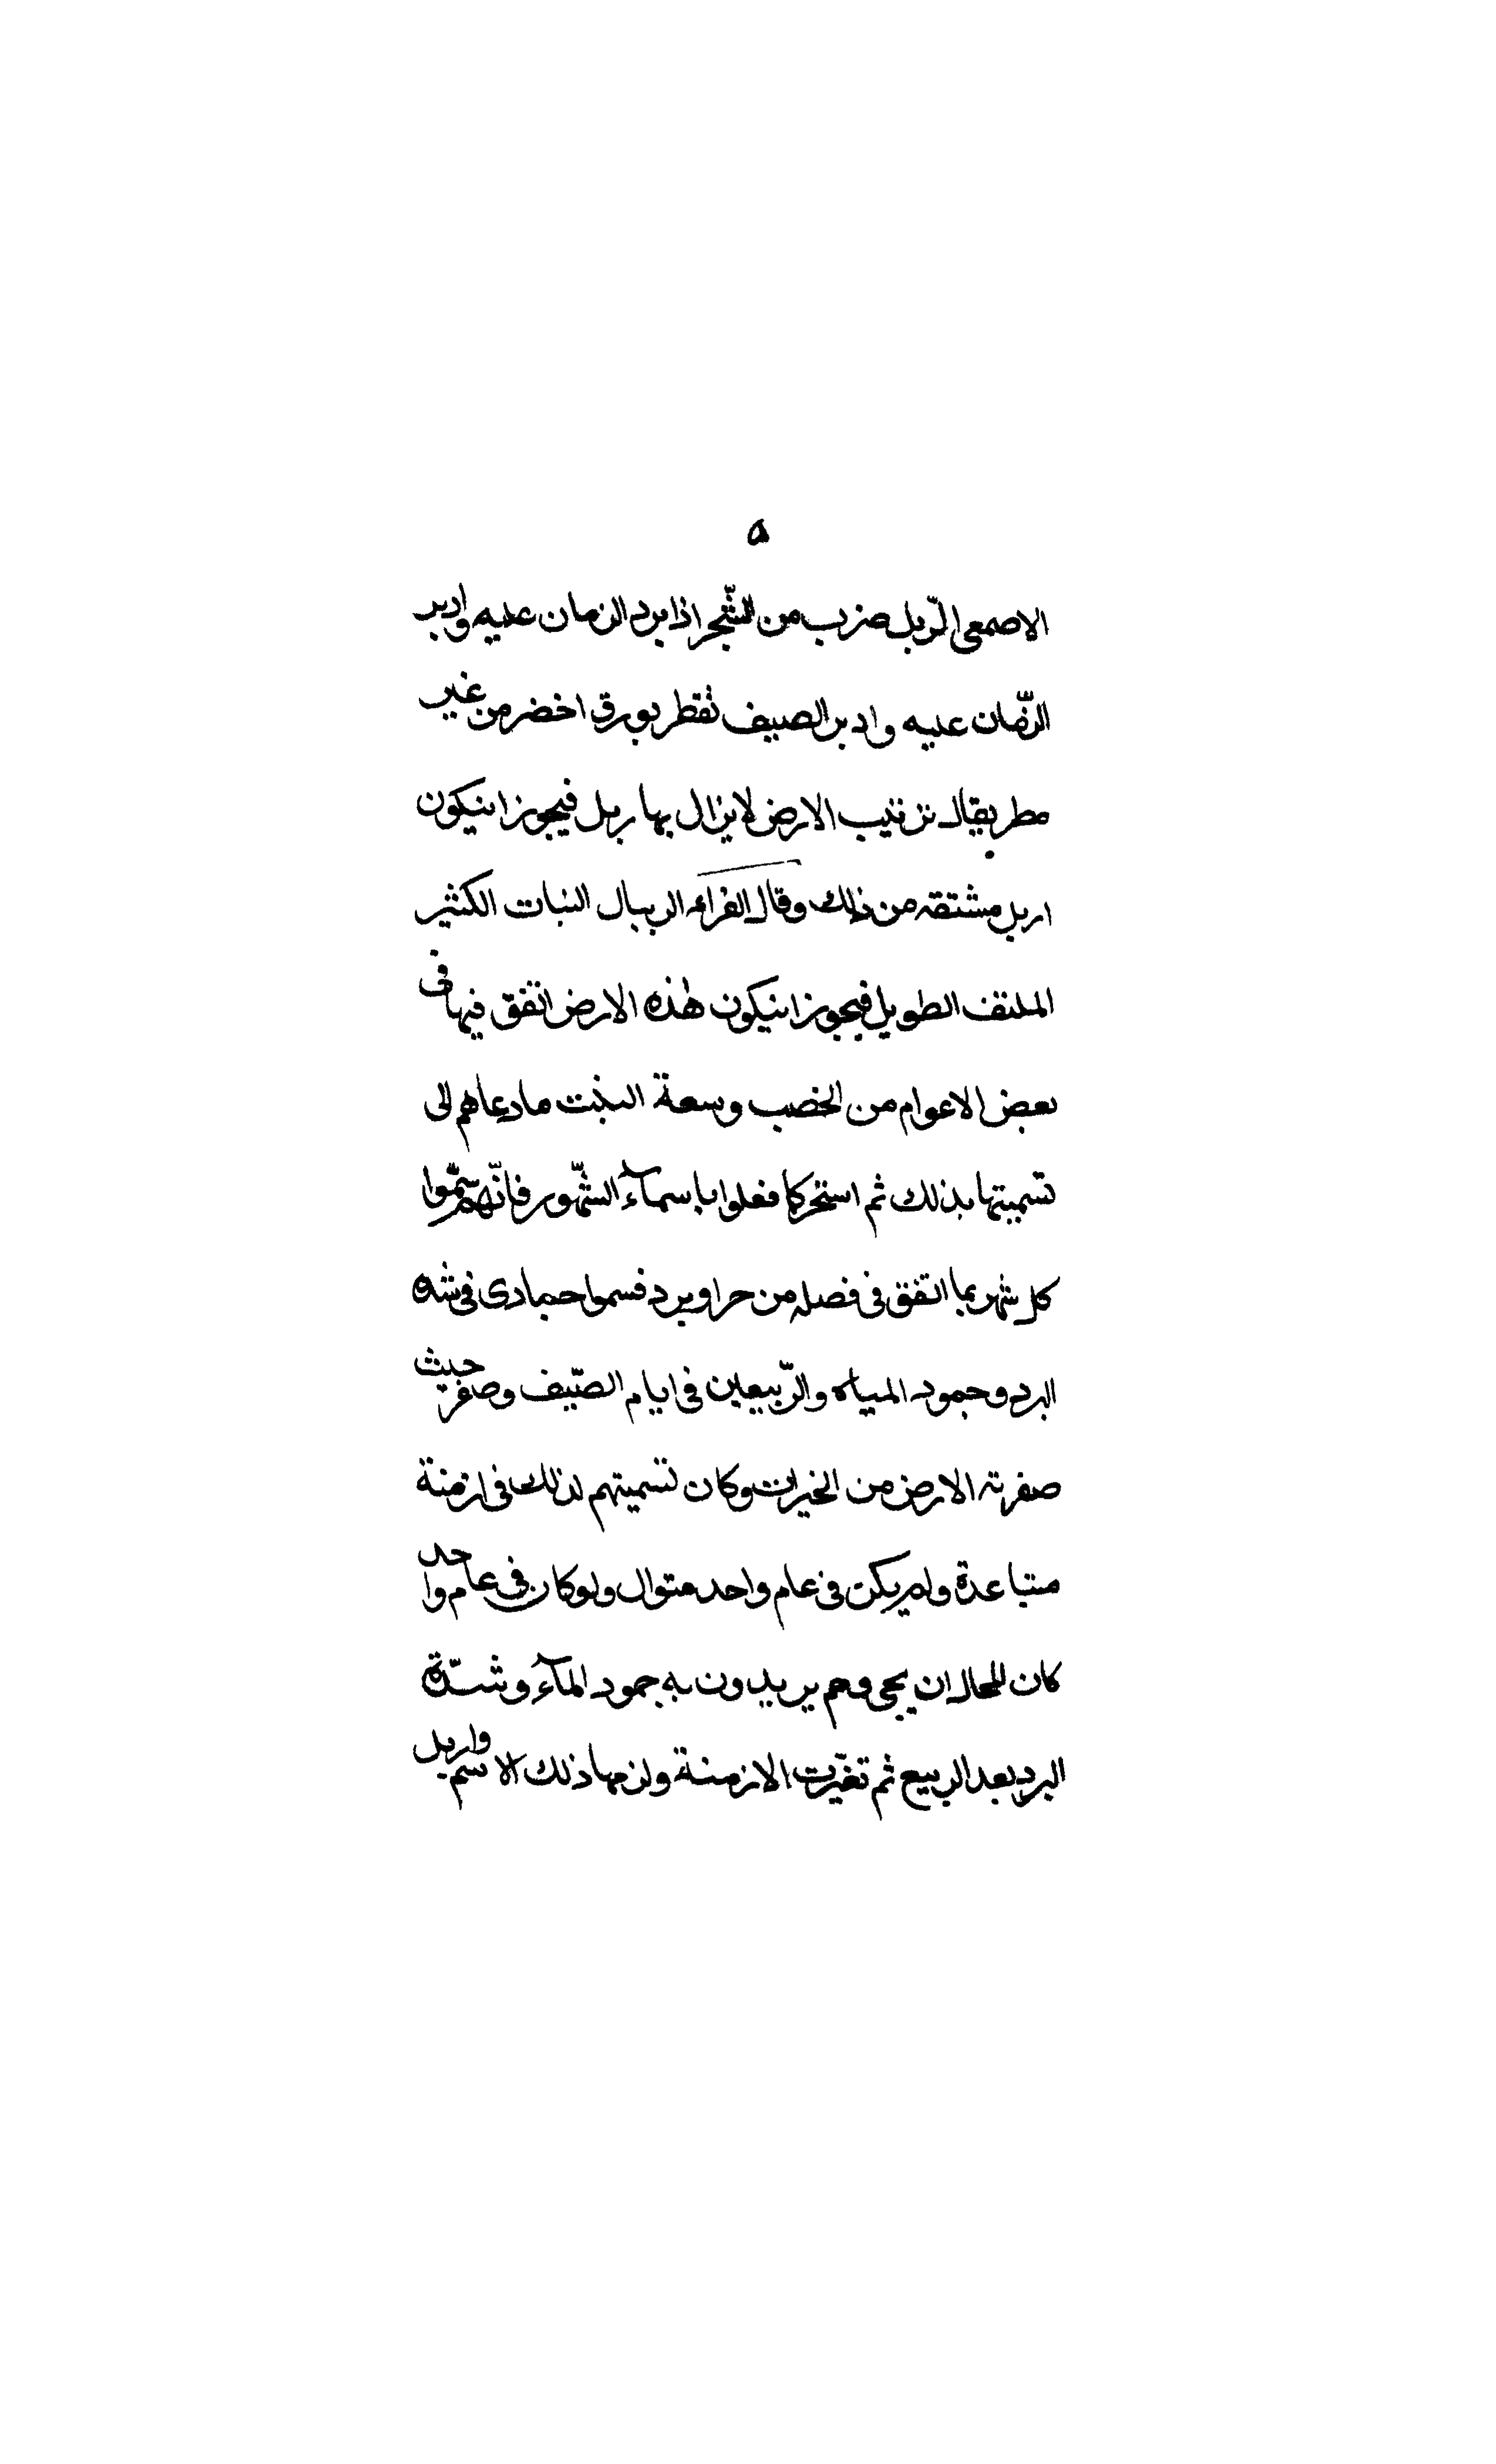 ٥
الاصمعى الرّبل ضرب من الشّجر اذا برد الزمان عليه وادبر
الزّمان عليه وادبر الصيف تفطر بورق اخضر من غير
مطر يقال تربيب الارض لا يزال بها ربل فيجوز انيكون
اربل مشتقه من ذلك وقال الفراء الريبال النبات الكثير
الملتف الطويل فيجوز انيكون هذه الارض اتفق فيها فى
بعض الاعوام من الخصب وسعة النبت ما دعاهم الى
تسميتها بذلك ثم استمر كما فعلوا باسمآء الشّهور فانّهم سمّوا
كل شهر بما اتفق فى فصله من حر او برد فسموا جمادى فى شده
البرد وجمود المياه والرّبيعين فى ايام الصّيف وصفر حيث
صفرت الارض من الخيرات وكان تسميتهم لذلك فى ازمنة
متباعدة ولم يكن فى عام واحد متوال ولو كان فى عام واحد
كان المحال ان يجى وهم يريدون به جمود المآء وشدّة
البرد بعد الربيع ثم تغيّرت الازمنة ولزمها ذلك الاسم واربل